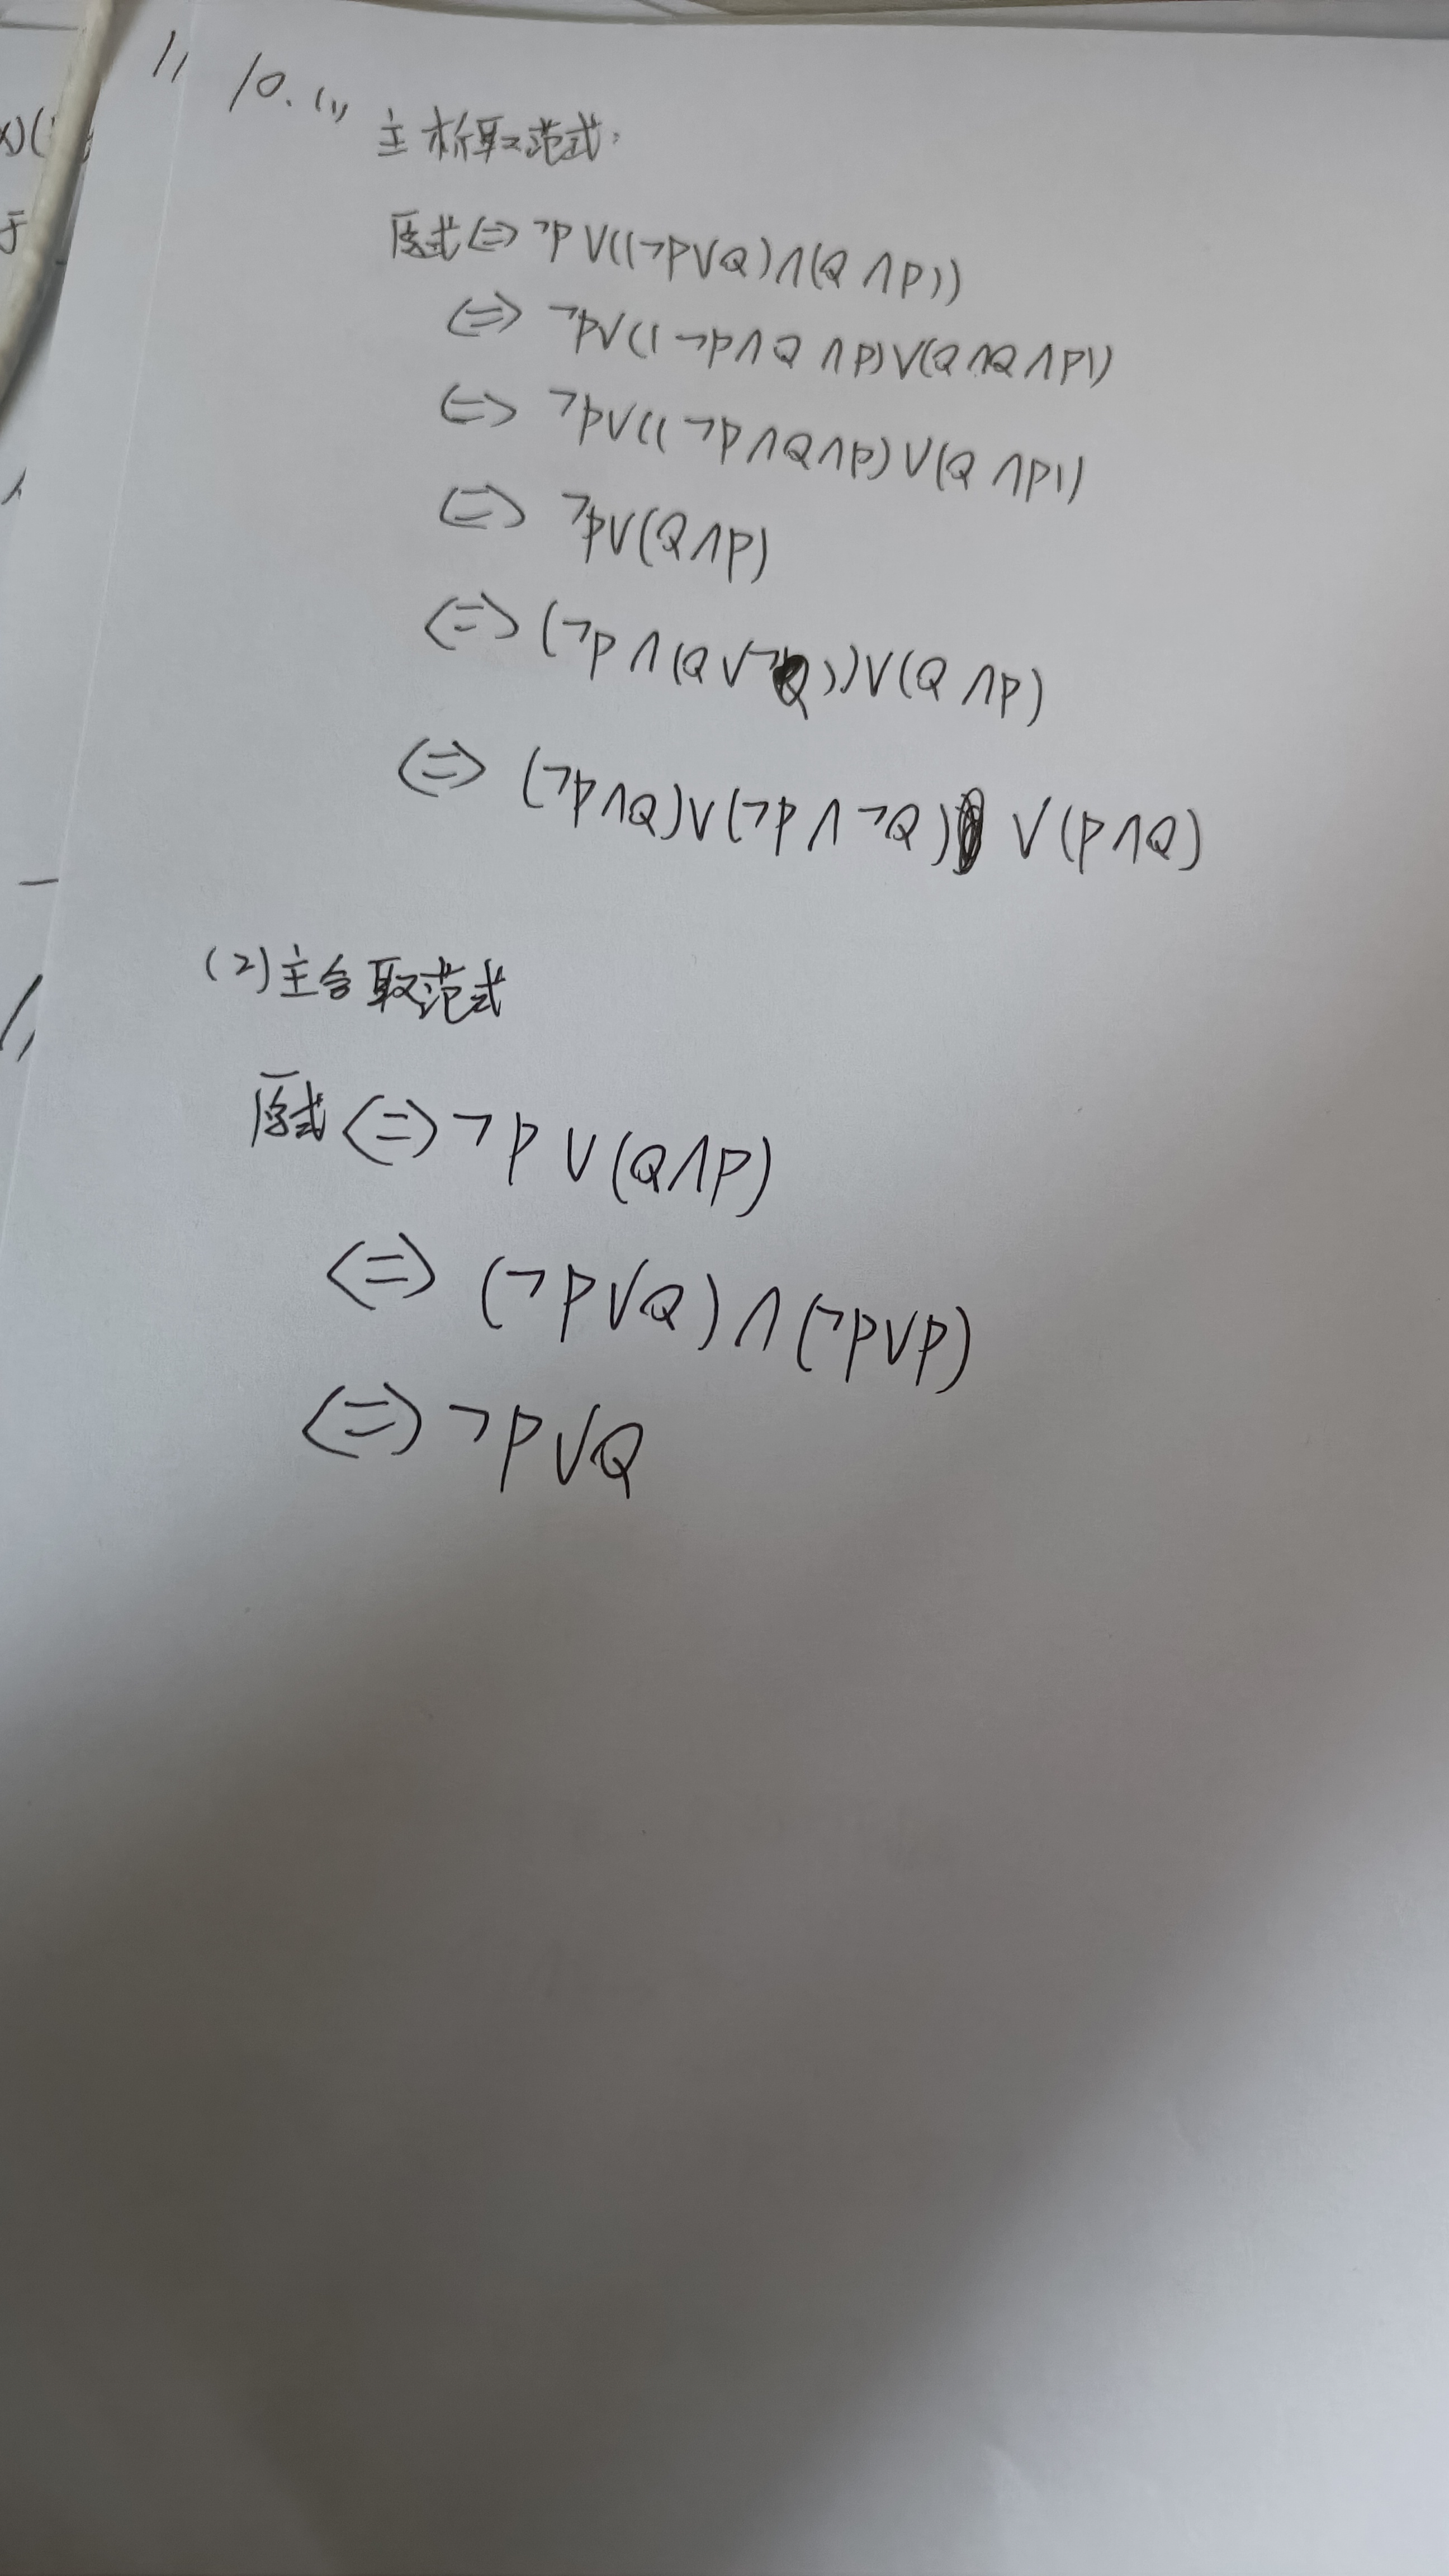 10. (1)
主析取范式:
原式⇔ ¬P∨((¬P∨Q)∧(Q∧P))
⇔ ¬P∨((¬P∧Q∧P)∨(Q∧Q∧P))
⇔ ¬P∨((¬P∧Q∧P)∨(Q∧P))
⇔ ¬P∨(Q∧P)
⇔ (¬P∧(Q∨¬Q))∨(Q∧P)
⇔ (¬P∧Q)∨(¬P∧¬Q)∨(P∧Q)
(2)主合取范式
原式⇔¬P∨(Q∧P)
⇔ (¬P∨Q)∧(¬P∨P)
⇔¬P∨Q